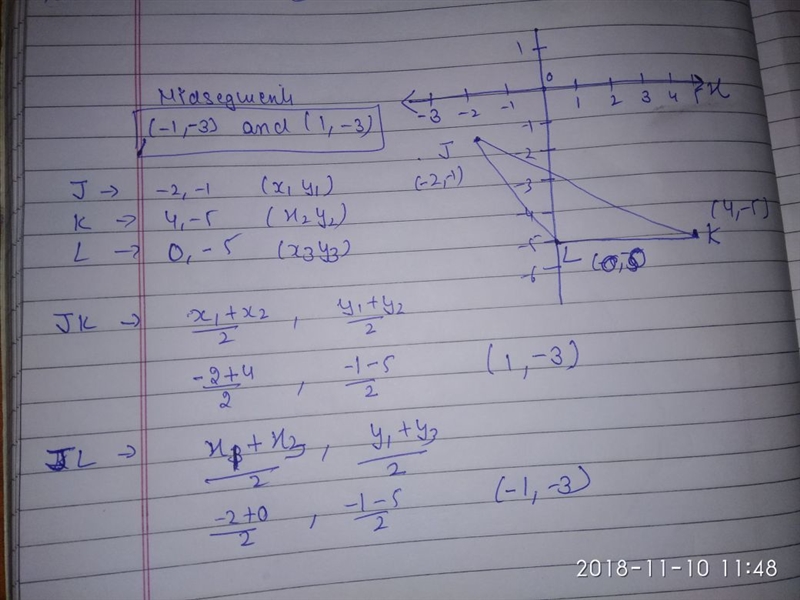 Midsegment
(-1,-3) and (1,-3)
J → -2, -1 (x₁ y₁)
K → 4, -5 (x₂ y₂)
L → 0, -5 (x₃ y₃)
JK → x₁+x₂/2 , y₁+y₂/2
-2+4/2 , -1-5/2 (1, -3)
JL → , y₁+y₃/2
-2+0/2 , -1-5/2 (-1, -3)
1
0
-3 -2 -1 1 2 3 4 x
-1
-2
-3
-4
-5
-6
J
(-2,-1)
(4,-5)
K
L
2018-11-10 11:48